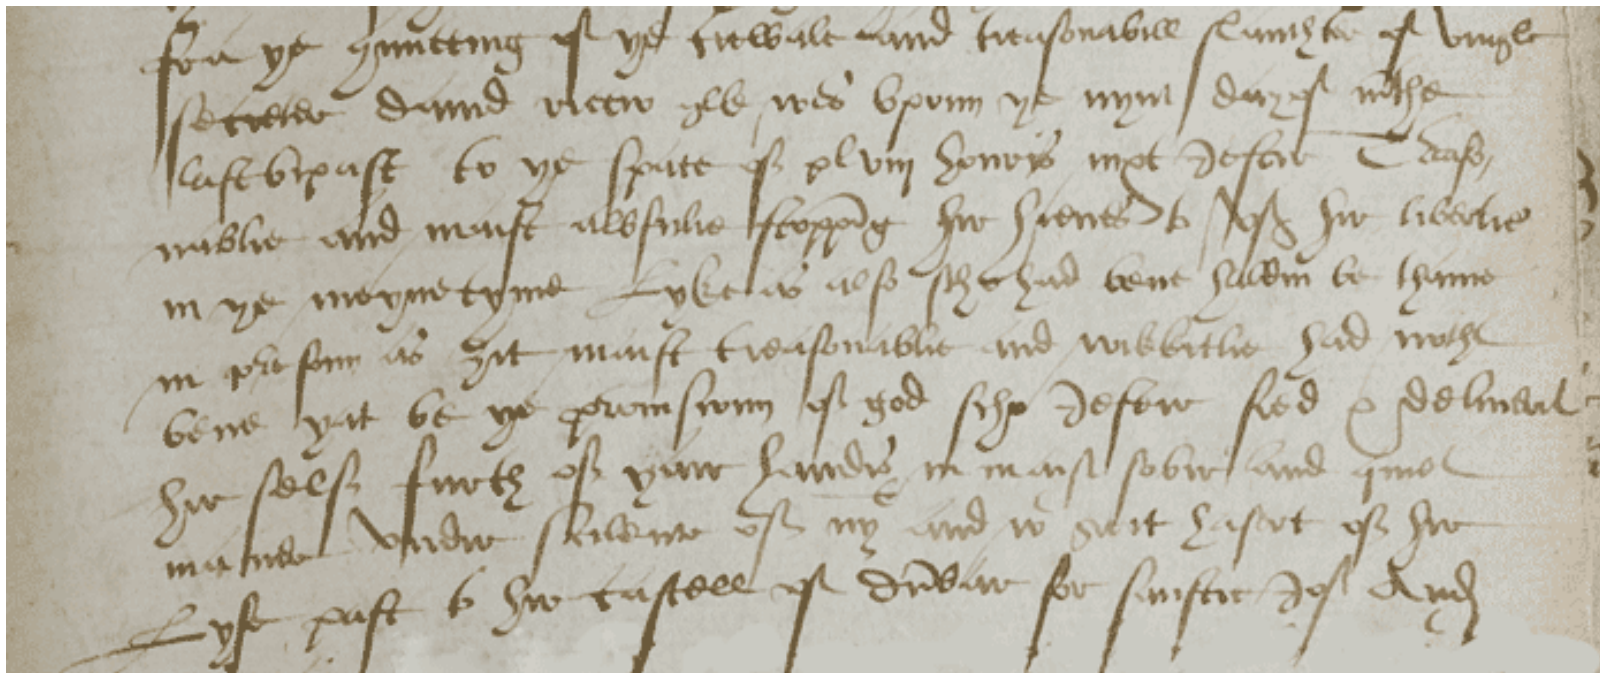 fra ye hunttting of ye crewale and treasonabill slauchter of vmqle
secreter dauid riccio qlk wes vponn ye nynt day of mche
last bipast to ye space of xlviij houris nixt yrefter Treaso
nablie and maist awfulie stopping hir hienes to vse hir libertie
in ye meyne tyme Lyke as also scho had bene haldin be thame
in presoun as yit maist treasonablie and wikkitlie had nocht
bene yat be ye prouisioun of god scho yrefter fred & deliuerit
hir self furth of yair handis in maist sobir and quiet
maner vndir scilence of nyt and wt grit hasert of hir
Lyfe past to hir castell of Dunbar for sauftie yrof And